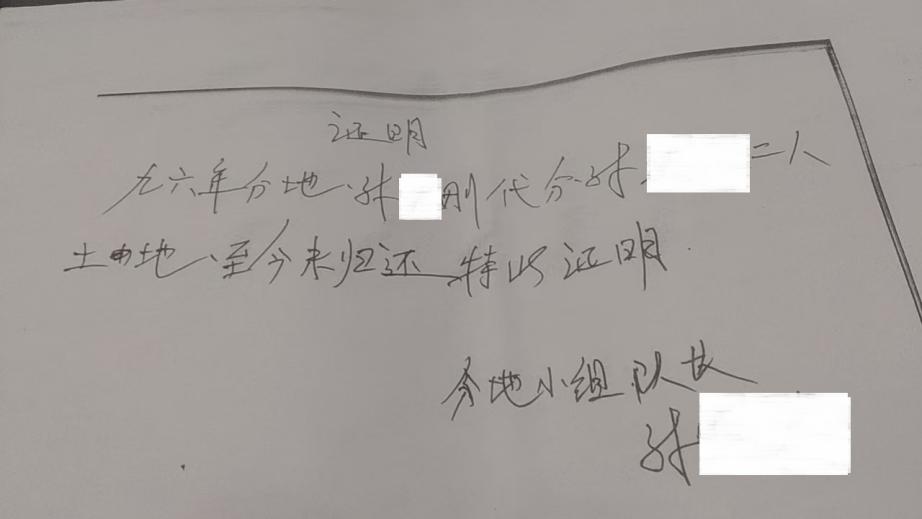 证明
九六年分地、孙 刚代分孙 二人
土地、至今未归还 特此证明
分地小组队长
孙